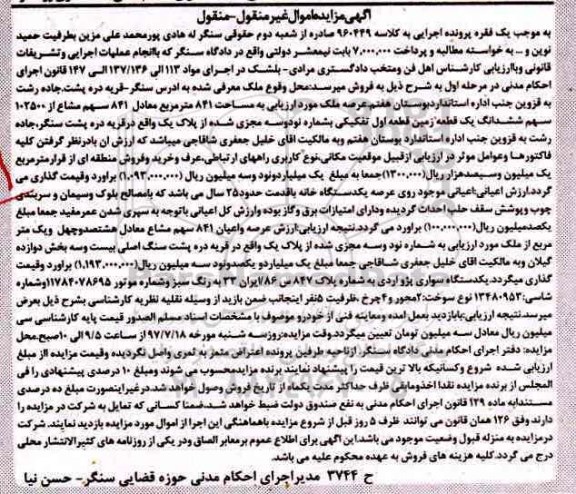 آگهی مزایده اموال غیر منقول-منقول
به موجب یک فقره پرونده اجرایی به کلاسه ۹۶۰۴۴۹ صادره از شعبه دوم حقوقی سنگر له هادی پورمحمد علی مزین بطرفیت حمید
نوین و ... به خواسته مطالبه و پرداخت ۷,۰۰۰,۰۰۰ بابت نیمعشر دولتی واقع در دادگاه سنگر که باانجام عملیات اجرایی و تشریفات
قانونی وباارزیابی کارشناس اهل فن ومنتخب دادگستری مرادی- بلشک در اجرای مواد ۱۱۳ الی ۱۳۷/۱۳۶ الی ۱۴۷ قانون اجرای
احکام مدنی در مرحله اول به شرح ذیل به فروش میرسد:محل وقوع ملک معرفی شده به ادرس سنگر-قریه دره پشت,جاده رشت
به قزوین جنب اداره استانداردبوستان هفتم,عرصه ملک مورد ارزیابی به مساحت ۸۴۱ مترمربع معادل ۸۴۱ سهم مشاع از ۱۰۲۵۰۰
سهم ششدانگ یک قطعه زمین قطعه اول تفکیکی بشماره نودوسه مجزی شده از پلاک یک واقع درقریه دره پشت سنگر,جاده
رشت به قزوین جنب اداره استاندارد بوستان هفتم وبه مالکیت اقای خلیل جعفری شاقاجی میباشد که ارزش ان بادرنظر گرفتن کلیه
فاکتورها وعوامل موثر در ارزیابی ازقبیل موقعیت مکانی,نوع کاربری راههای ارتباطی,عرف وخرید وفروش منطقه ای از قرارمترمربع
یک میلیون وسیصدهزار ریال(۱۳۰۰,۰۰۰)جمعا به مبلغ یک میلیاردونود وسه میلیون ریال (۱,۰۹۳,۰۰۰,۰۰۰) براورد وقیمت گذاری می
گردد.ارزش اعیانی:اعیانی موجود روی عرصه یکدستگاه خانه باقدمت حدود۲۵ سال می باشد که بامصالح بلوک وسیمان و سربندی
چوب وپوشش سقف حلب احداث گردیده ودارای امتیازات برق وگاز بوده وارزش کل اعیانی باتوجه به سپری شدن عمرمفید جمعا مبلغ
یکصدمیلیون ریال(۱۰۰,۰۰۰,۰۰۰) براورد می گردد.نتیجه ارزیابی:ارزش عرصه واعیان ۸۴۱ سهم مشاع معادل هشتصدوچهل ویک متر
مربع از ملک مورد ارزیابی به شماره نود وسه مجزی شده از پلاک یک واقع در قریه دره پشت سنگ اصلی بیست وسه بخش دوازده
گیلان وبه مالکیت اقای خلیل جعفری شاقاجی جمعا مبلغ یک میلیاردو یکصدونود سه میلیون ریال(۱,۱۹۳,۰۰۰,۰۰۰) براورد وقیمت
گذاری میگردد.یکدستگاه سواری پژو اردی به شماره پلاک ۸۴۷س۸۶/ایران ۳۳ به رنگ سبز وشماره موتور ۱۱۷۸۴۰۷۸۶۹۵وشماره
شاسی:۱۳۴۸۰۹۵۳ نوع سوخت:۲محور و۴چرخ ,ظرفیت ۵نفر اینجانب ضمن بازید از وسیله نقلیه نظریه کارشناسی بشرح ذیل بعرض
میرسد.نتیجه ارزیابی:بابازدید بعمل امده ومعاینه فنی از خودرو موصوف با مشخصات اسناد مسلم الصدور قیمت پایه کارشناسی سی
میلیون ریال معادل سه میلیون تومان تعیین میگردد.وقت مزایده:روزسه شنبه مورخه ۹۷/۷/۱۸ از ساعت ۹/۵ الی ۱۰صبح.محل
مزایده: دفتر اجرای احکام مدنی دادگاه سنگر. ازناحیه طرفین پرونده اعتراض مثمر به ثمری واصل نگردیده وقیمت مزایده ااز مبلغ
ارزیابی شده شروع وکسانیکه بالا ترین قیمت را پیشنهاد نمایند برنده مزایده محسوب می شوند ومبلغ ۱۰ درصدی پیشنهادی را فی
المجلس از برنده مزایده نقدا اخذ ومابقی ظرف حداکثر مدت یکماه از تاریخ فروش وصول خواهد شد.درغیراینصورت مبلغ ده درصدی
مستندابه ماده ۱۲۹ قانون اجرای احکام مدنی به نفع صندوق دولت ضبط خواهد شد.ضمنا کسانی که تمایل به شرکت در مزایده را
دارند وفق ۱۲۶ همان قانون می توانند ظرف ۵ روز قبل از شروع مزایده باهماهنگی این اجرا از اموال مورد مزایده بازدید نمایند. شرکت
درمزایده به منزله قبول وضعیت موجود می باشد.این آگهی برای اطلاع عموم برمعابر الصاق ودر یکی از روزنامه های کثیرالانتشار محلی
درج می گردد.کلیه هزینه های فروش به عهده محکوم علیه می باشد.
ح ۳۷۴۴ مدیراجرای احکام مدنی حوزه قضایی سنگر- حسن نیا